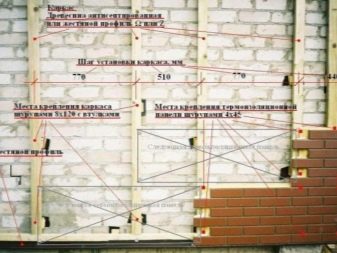 Каркас
Древесина антисептированная
или жестяной профиль 52 или Z
Шаг установки каркаса, мм
770
510
770
440
Места крепления каркаса
шурупами 8х120 с втулками
Места крепления термоизоляционной
панели шурупами 4х45
естяной профиль